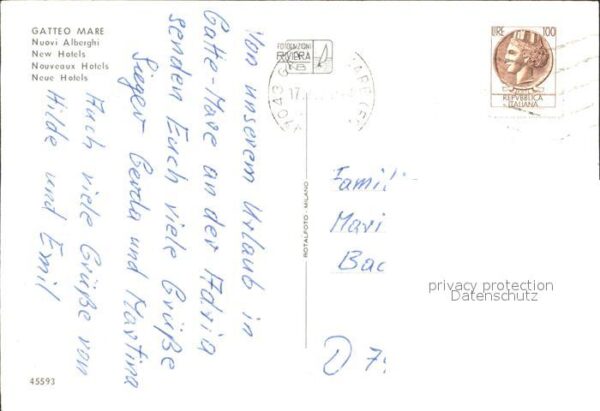 GATTEO MARE
Nuovi Alberghi
New Hotels
Nouveaux Hotels
Neue Hotels
Von unserem Urlaub in
Gatte-Mare an der Adria
senden Euch viele Grüße
Gerda und Martina
Auch viele Grüße von
Hilde und Emil
45593
FOTOEDIZIONI
RIVIERA
47043
MARE (FO)
17
ROTALFOTO - MILANO
LIRE 100
REPVBBLICA
ITALIANA
Famil
Mari
Bac
D 7
privacy protection
Datenschutz